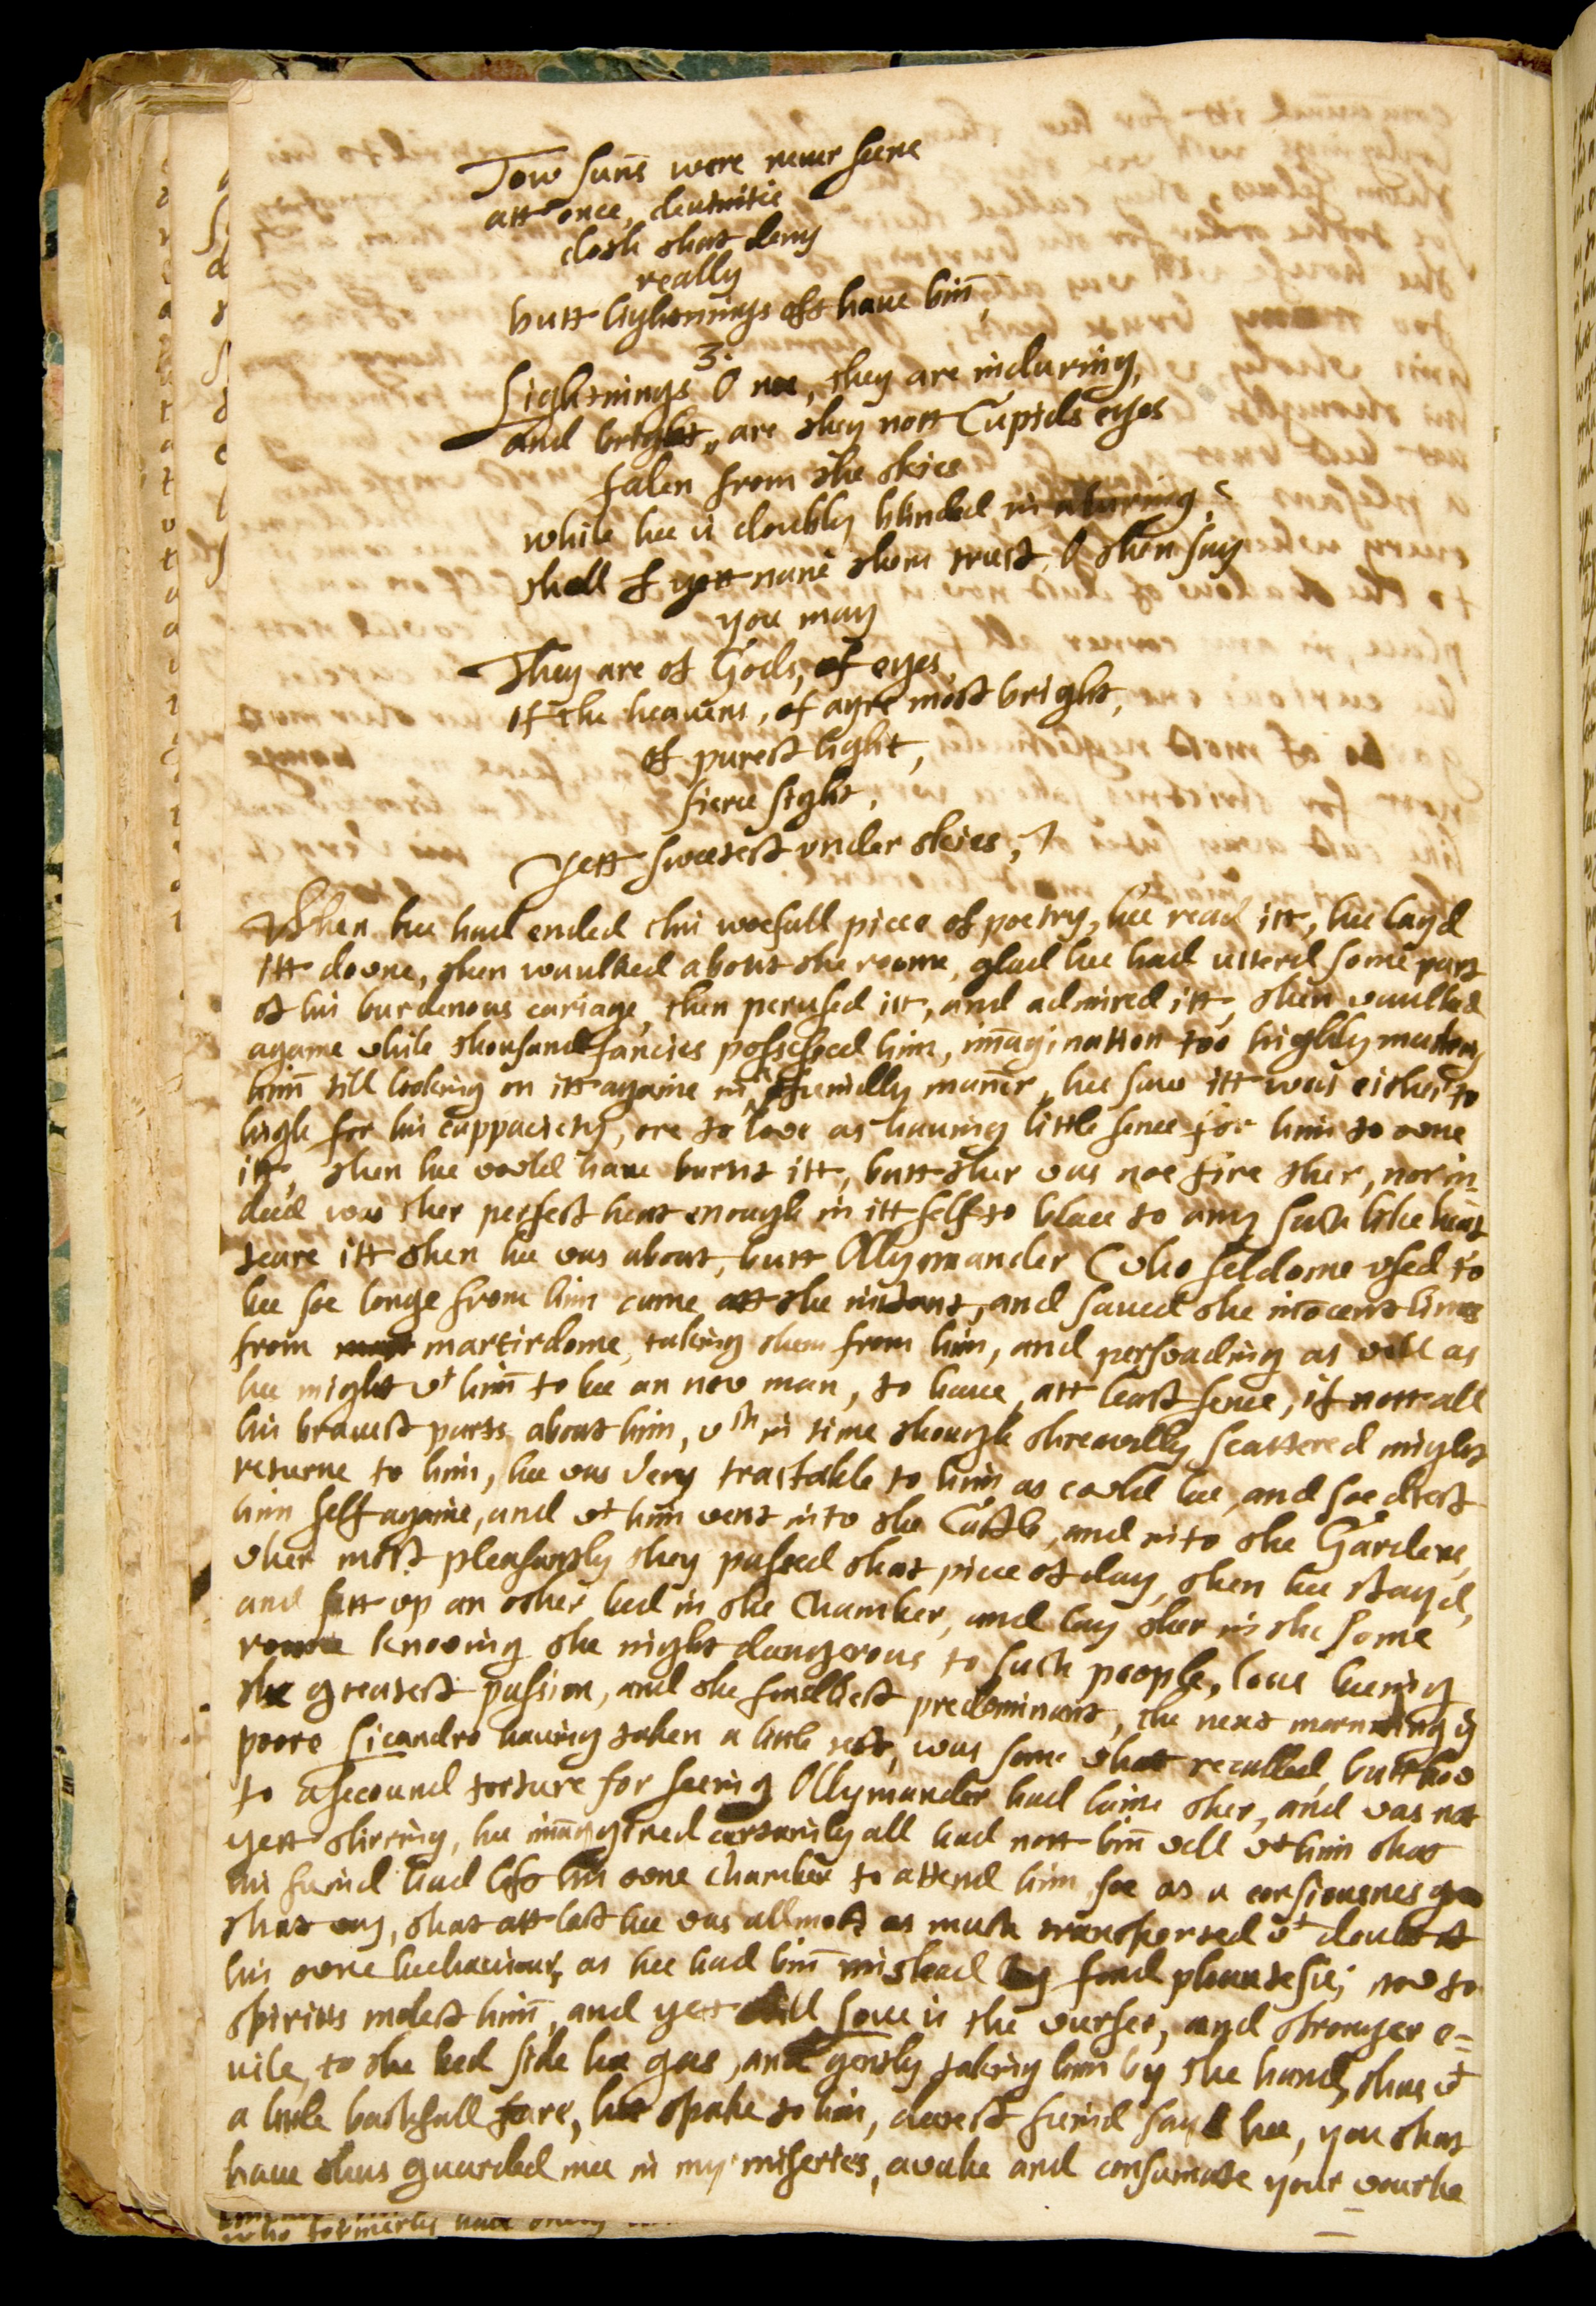 Tow sunns were never seene
att once, deutritie
doth that deny
really
butt lightnings oft have binn,
3.
Lightnings O noe, they are induring,
and bright, are they nott Cupids eyes
falen from the skies
while hee is doubly blinded in aluring,
shall I yett nane them trust, O then say
you may
They are of Gods, of eyes
of the heavens, of ayre most bright,
of purest light,
fierce sight,
yett sweetest under skies,
When hee had ended this woefull piece of poetry, hee read itt, hee layd
itt downe, then waulked about the roome, glad hee had utterd some part
of his burdenous cariage, then perused itt, and admired itt, then vaulked
againe while thousand fancies possessed him, imagination too highly
himm till looking on itt againe in freindly manner, hee saw itt was either to
high for his cappacity, ore to lowe as having little sence for him to owne
itt, then hee would have burnt itt, butt ther was noe fire ther, nor in=
deed was ther perfect heat enough in itt self to blaze to any such like heat
teare itt then hee was about, butt Ollymander (who seldome used to
bee soe longe from him came att the instant, and saved the inocent lines
from martirdome, taking them from him, and perswading as well as
hee might wt himm to bee an new man, to have, att least sence, if nott all
his bravest parts about him, wch in time though shrewdly scattered might
returne to him, hee was very tractable to him as could bee, and soe drest
him self againe, and wt himm went into the Castle, and into the Gardens,
wher most pleasantly they passed that piece of day, then hee stayd,
and sett up an other bed in the Chamber, and lay ther in the some
roome knowing the night dangerous to such people, love beeing
the greatest passion, and the predominant, the next morning
poore Licandro having taken a little rest, was some what recalled, butt
to a secound torture for seeing Ollymander had laine ther, and was not
yett stirring, hee imagined certainly all had nott binn well wt him that
his freind had left his owne chamber to attend him, soe as a consiousnes
that way, that att last hee was allmost as much transported wt doubt of
his owne beehaviour, as hee had binn mislead by fond phantesie, now to
spiritts molest himm, and yett still Love is the wurser, and stronger e=
vile, to the bed side hee goes, and gently taking him by the hand, thus wt
a little bashfull feare, hee spake to him, deerest freind sayd hee, you that
have thus guarded mee in my miseries, awake and consumate your wourke